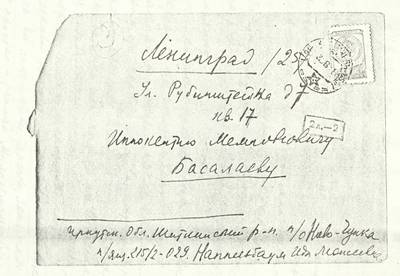 Ленинград / 25
Ул. Рубинштейна д 7
кв. 17
Иннокентию Мемноновичу
Басалаеву
2л.—2
Иркутск. Обл. Шиткинский р-н. п/о Ново-Чунка
п/ящ. 215/2-029. Наппельбаум Ида Моисеевна